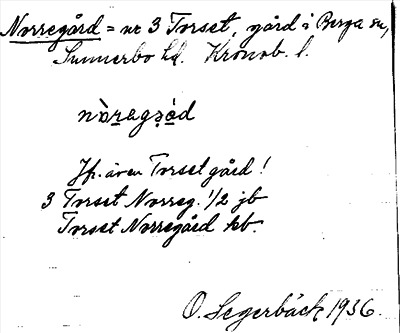 Norregård = nr 3 Torset, gård i Berga sn,
Sunnerbo hd. Kronob. l.
nòrag̣ạd
Jfr. även Torset gård!
3 Torset Norreg. 1/2 jb
Torset Norregård kb.
O. Segerbäck 1936.